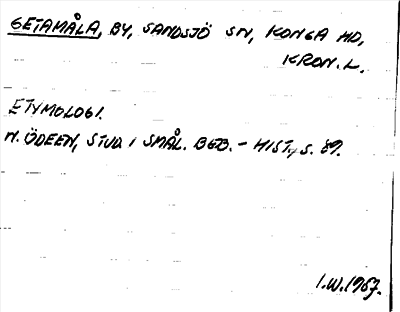 GETAMÅLA, BY, SANDSJÖ SN, KONGA HD,
KRON.L.
ETYMOLOGI.
N. ÖDEEN, STUD. I SMÅL. BEB. - HIST., S. 89.
I.W. 1967.